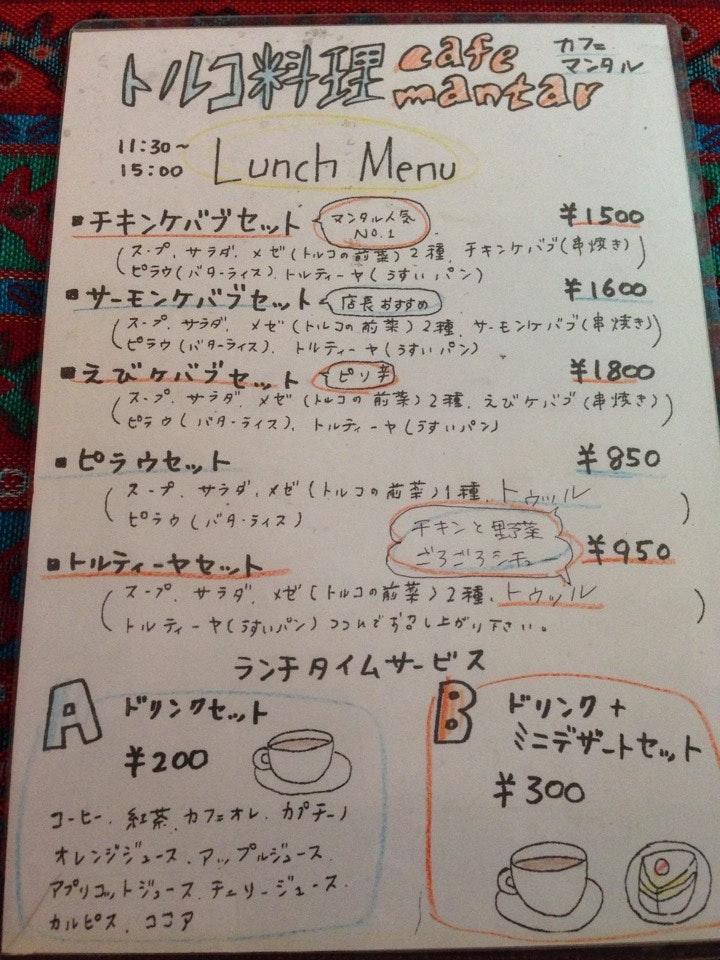 トルコ料理 cafe mantar カフェ マンタル
11:30~
15:00 Lunch Menu
■チキンケバブセット マンタル人気 NO.1 ¥1500
(スープ、サラダ、メゼ(トルコの前菜)2種、チキンケバブ(串焼き)
ピラウ(バターライス)、トルティーヤ(うすいパン))
■サーモンケバブセット 店長おすすめ ¥1600
(スープ、サラダ、メゼ(トルコの前菜)2種、サーモンケバブ(串焼き)
ピラウ(バターライス)、トルティーヤ(うすいパン))
■えびケバブセット ピリ辛 ¥1800
(スープ、サラダ、メゼ(トルコの前菜)2種、えびケバブ(串焼き)
ピラウ(バターライス)、トルティーヤ(うすいパン))
■ピラウセット ¥850
(スープ、サラダ、メゼ(トルコの前菜)1種、トゥッル
ピラウ(バターライス))
チキンと野菜
ごろごろシチュー
■トルティーヤセット ¥950
(スープ、サラダ、メゼ(トルコの前菜)2種、トゥッル
トルティーヤ(うすいパン)つつんでお召し上がり下さい。)
ランチタイムサービス
A ドリンクセット
¥200
コーヒー、紅茶、カフェオレ、カプチーノ
オレンジジュース、アップルジュース、
アプリコットジュース、チェリージュース、
カルピス、ココア
B ドリンク+
ミニデザートセット
¥300